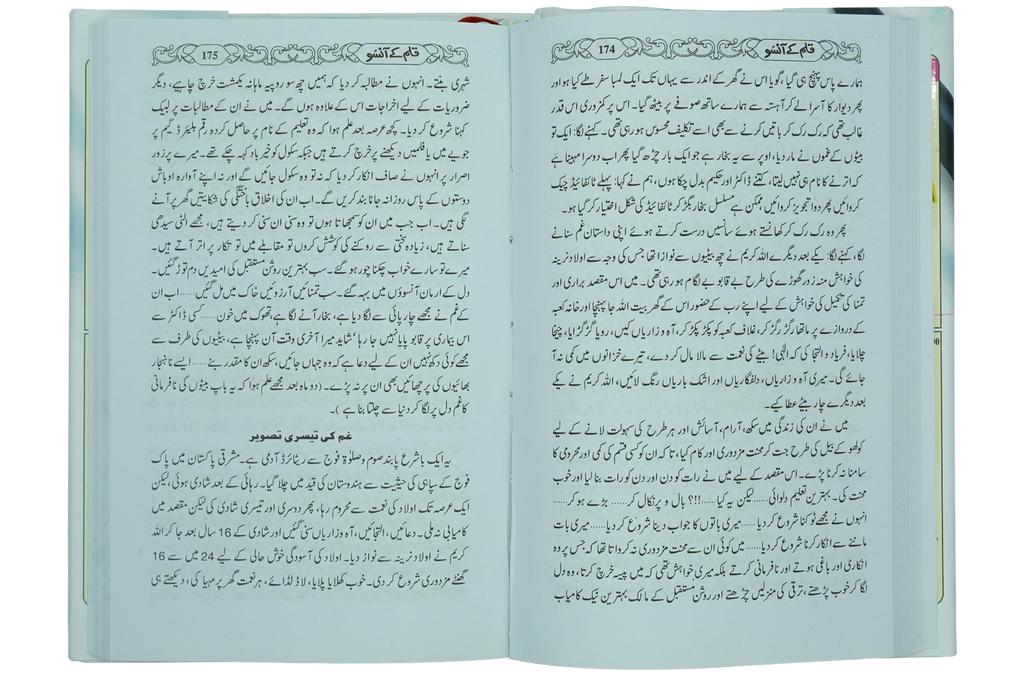 قلم کے آنسو
174
ہمارے پاس پہنچ ہی گیا، گویا اس نے گھر کے اندر سے یہاں تک ایک لمبا سفر طے کیا ہو اور
پھر دیوار کا آسرا لے کر آہستہ سے ہمارے ساتھ صوفے پر بیٹھ گیا۔ اس پر کمزوری اس قدر
غالب تھی کہ رک رک کر باتیں کرنے سے بھی اسے تکلیف محسوس ہو رہی تھی۔ کہنے لگا: ایک تو
بیٹوں کے غموں نے مار دیا، اوپر سے یہ بخار ہے جو ایک بار چڑھ گیا پھر اب دوسرا مہینا ہے
کہ اترنے کا نام ہی نہیں لیتا، کتنے ڈاکٹر اور حکیم بدل چکا ہوں، ہم نے کہا: پہلے ٹائفائیڈ چیک
کروائیں پھر دوا تجویز کروائیں ممکن ہے مسلسل بخار بگڑ کر ٹائفائیڈ کی شکل اختیار کر گیا ہو۔
پھر وہ رک رک کر کھانستے ہوئے سانسیں درست کرتے ہوئے اپنی داستان غم سنانے
لگا، کہنے لگا: یکے بعد دیگرے اللہ کریم نے چھ بیٹیوں سے نوازا تھا جس کی وجہ سے اولاد نرینہ
کی خواہش منہ زور گھوڑے کی طرح بے قابو بے لگام ہو رہی تھی۔ میں اس مقصد براری اور
تمنا کی تکمیل کی خواہش کے لیے اپنے رب کے حضور اس کے گھر بیت اللہ جا پہنچا اور خانہ کعبہ
کے دروازے پر ماتھا رگڑ رگڑ کر، غلاف کعبہ کو پکڑ پکڑ کر، آہ و زاریاں کیں، رویا گڑگڑایا، چیخا
چلایا، فریاد و التجا کی کہ الٰہی! بیٹے کی نعمت سے مالا مال کر دے، تیرے خزانوں میں کمی نہ آ
جائے گی۔ میری آہ و زاریاں، دلفگاریاں اور اشک باریاں رنگ لائیں، اللہ کریم نے یکے
بعد دیگرے چار بیٹے عطا کیے۔
میں نے ان کی زندگی میں سکھ، آرام، آسائش اور ہر طرح کی سہولت لانے کے لیے
کولھو کے بیل کی طرح جت کر محنت مزدوری اور کام کیا، تا کہ ان کو کسی قسم کی کمی اور محرومی کا
سامنا نہ کرنا پڑے۔ اس مقصد کے لیے میں نے رات کو دن اور دن کو رات بنا لیا اور خوب
محنت کی۔ بہترین تعلیم دلوائی......لیکن یہ کیا......!!!؟ بال و پر نکال کر...... بڑے ہو کر......
انہوں نے مجھے ٹوکنا شروع کر دیا......میری باتوں کا جواب دینا شروع کر دیا......میری بات
ماننے سے انکار کرنا شروع کر دیا......میں کوئی ان سے محنت مزدوری نہ کرواتا تھا کہ جس پر وہ
انکاری اور باغی ہوتے اور نافرمانی کرتے بلکہ میری خواہش تھی کہ میں پیسہ خرچ کرتا، وہ دل
لگا کر خوب پڑھتے، ترقی کی منزلیں چڑھتے اور روشن مستقبل کے مالک بہترین نیک کامیاب
قلم کے آنسو
175
شہری بنتے۔ انہوں نے مطالبہ کر دیا کہ ہمیں چھ سو روپیہ ماہانہ یکمشت خرچ چاہیے، دیگر
ضروریات کے لیے اخراجات اس کے علاوہ ہوں گے۔ میں نے ان کے مطالبات پر لبیک
کہنا شروع کر دیا۔ کچھ عرصہ بعد علم ہوا کہ وہ تعلیم کے نام پر حاصل کردہ رقم بلیئرڈ گیم پر
جوئے میں یا فلمیں دیکھنے پر خرچ کرتے ہیں جبکہ سکول کو خیر باد کہہ چکے تھے۔ میرے پر زور
اصرار پر انہوں نے صاف انکار کر دیا کہ نہ تو وہ سکول جائیں گے اور نہ اپنے آوارہ اوباش
دوستوں کے پاس روزانہ جانا بند کریں گے۔ اب ان کی اخلاق باختگی کی شکایتیں گھر پر آنے
لگی ہیں۔ اب جب میں ان کو سمجھاتا ہوں تو وہ سنی ان سنی کر دیتے ہیں، مجھے الٹی سیدھی
سناتے ہیں، زیادہ سختی سے روکنے کی کوشش کروں تو مقابلے میں تو تکار پر اتر آتے ہیں۔
میرے تو سارے خواب چکنا چور ہو گئے۔ سب بہترین روشن مستقبل کی امیدیں دم توڑ گئیں۔
دل کے ارمان آنسوؤں میں بہہ گئے۔ سب تمنائیں آرزوئیں خاک میں مل گئیں......اب ان
کے غم نے مجھے چارپائی سے لگا دیا ہے، بخار آنے لگا ہے، تھوک میں خون......کسی ڈاکٹر سے
اس بیماری پر قابو پایا نہیں جا رہا 'شاید میرا آخری وقت آن پہنچا ہے، بیٹیوں کی طرف سے
مجھے کوئی دکھ نہیں ان کے لیے دعا ہے کہ وہ جہاں جائیں، سکھ ان کا مقدر بنے......ایسے ناہنجار
بھائیوں کی پرچھائیں بھی ان پر نہ پڑے۔ (دو ماہ بعد مجھے علم ہوا کہ یہ باپ بیٹوں کی نافرمانی
کا غم دل پر لگا کر دنیا سے چلتا بنا ہے)۔
غم کی تیسری تصویر
یہ ایک باشرع پابند صوم و صلوٰۃ فوج سے ریٹائرڈ آدمی ہے۔ مشرقی پاکستان میں پاک
فوج کے سپاہی کی حیثیت سے ہندوستان کی قید میں چلا گیا۔ رہائی کے بعد شادی ہوئی، لیکن
ایک عرصہ تک اولاد کی نعمت سے محروم رہا، پھر دوسری اور تیسری شادی کی لیکن مقصد میں
کامیابی نہ ملی۔ دعائیں، التجائیں، آہ و زاریاں سنی گئیں اور شادی کے 16 سال بعد جا کر اللہ
کریم نے اولاد نرینہ سے نواز دیا۔ اولاد کی آسودگی خوش حالی کے لیے 24 میں سے 16
گھنٹے مزدوری شروع کر دی۔ خوب کھلایا پلایا، لاڈ لڈائے، ہر نعمت گھر پر مہیا کی، دیکھتے ہی